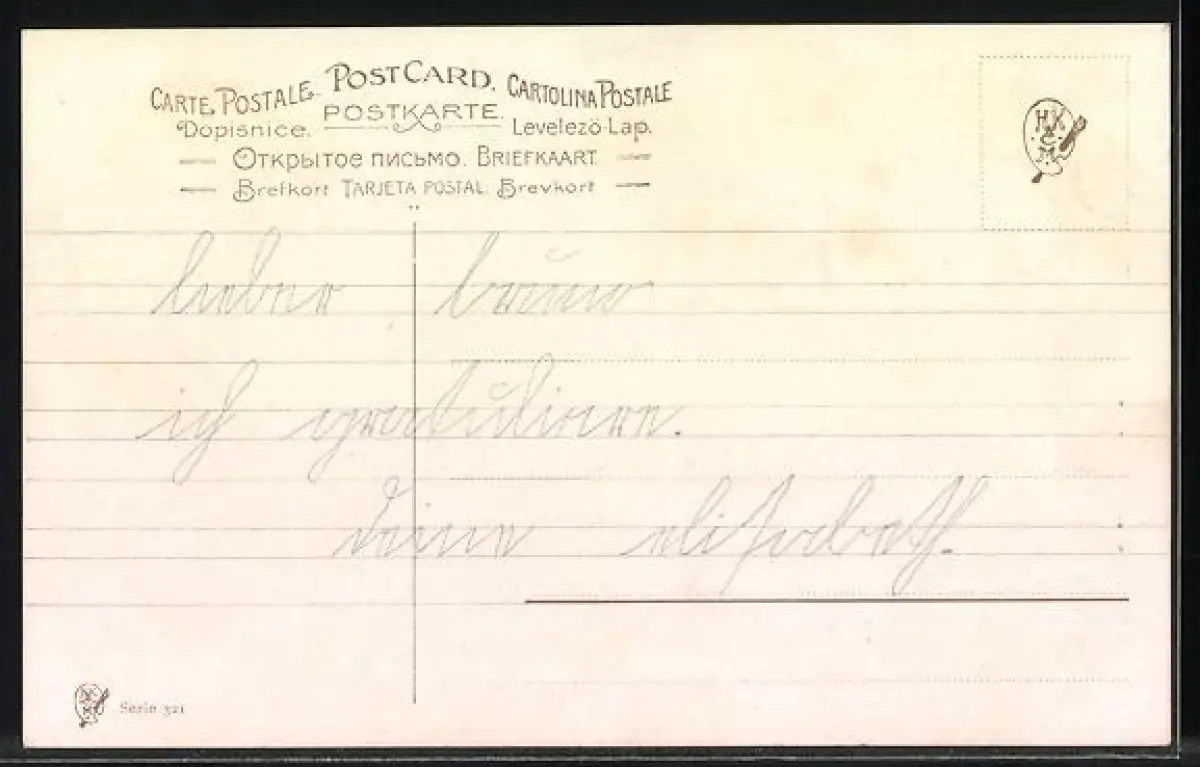 CARTE POSTALE. POST CARD. CARTOLINA POSTALE
Dopisnice. POSTKARTE. Levelezö-Lap.
Открытое письмо. BRIEFKAART
Brefkort TARJETA POSTAL. Brevkort
HK & C M
lieber bruno
ich gratuliere.
deine elisabeth.
Serie 321